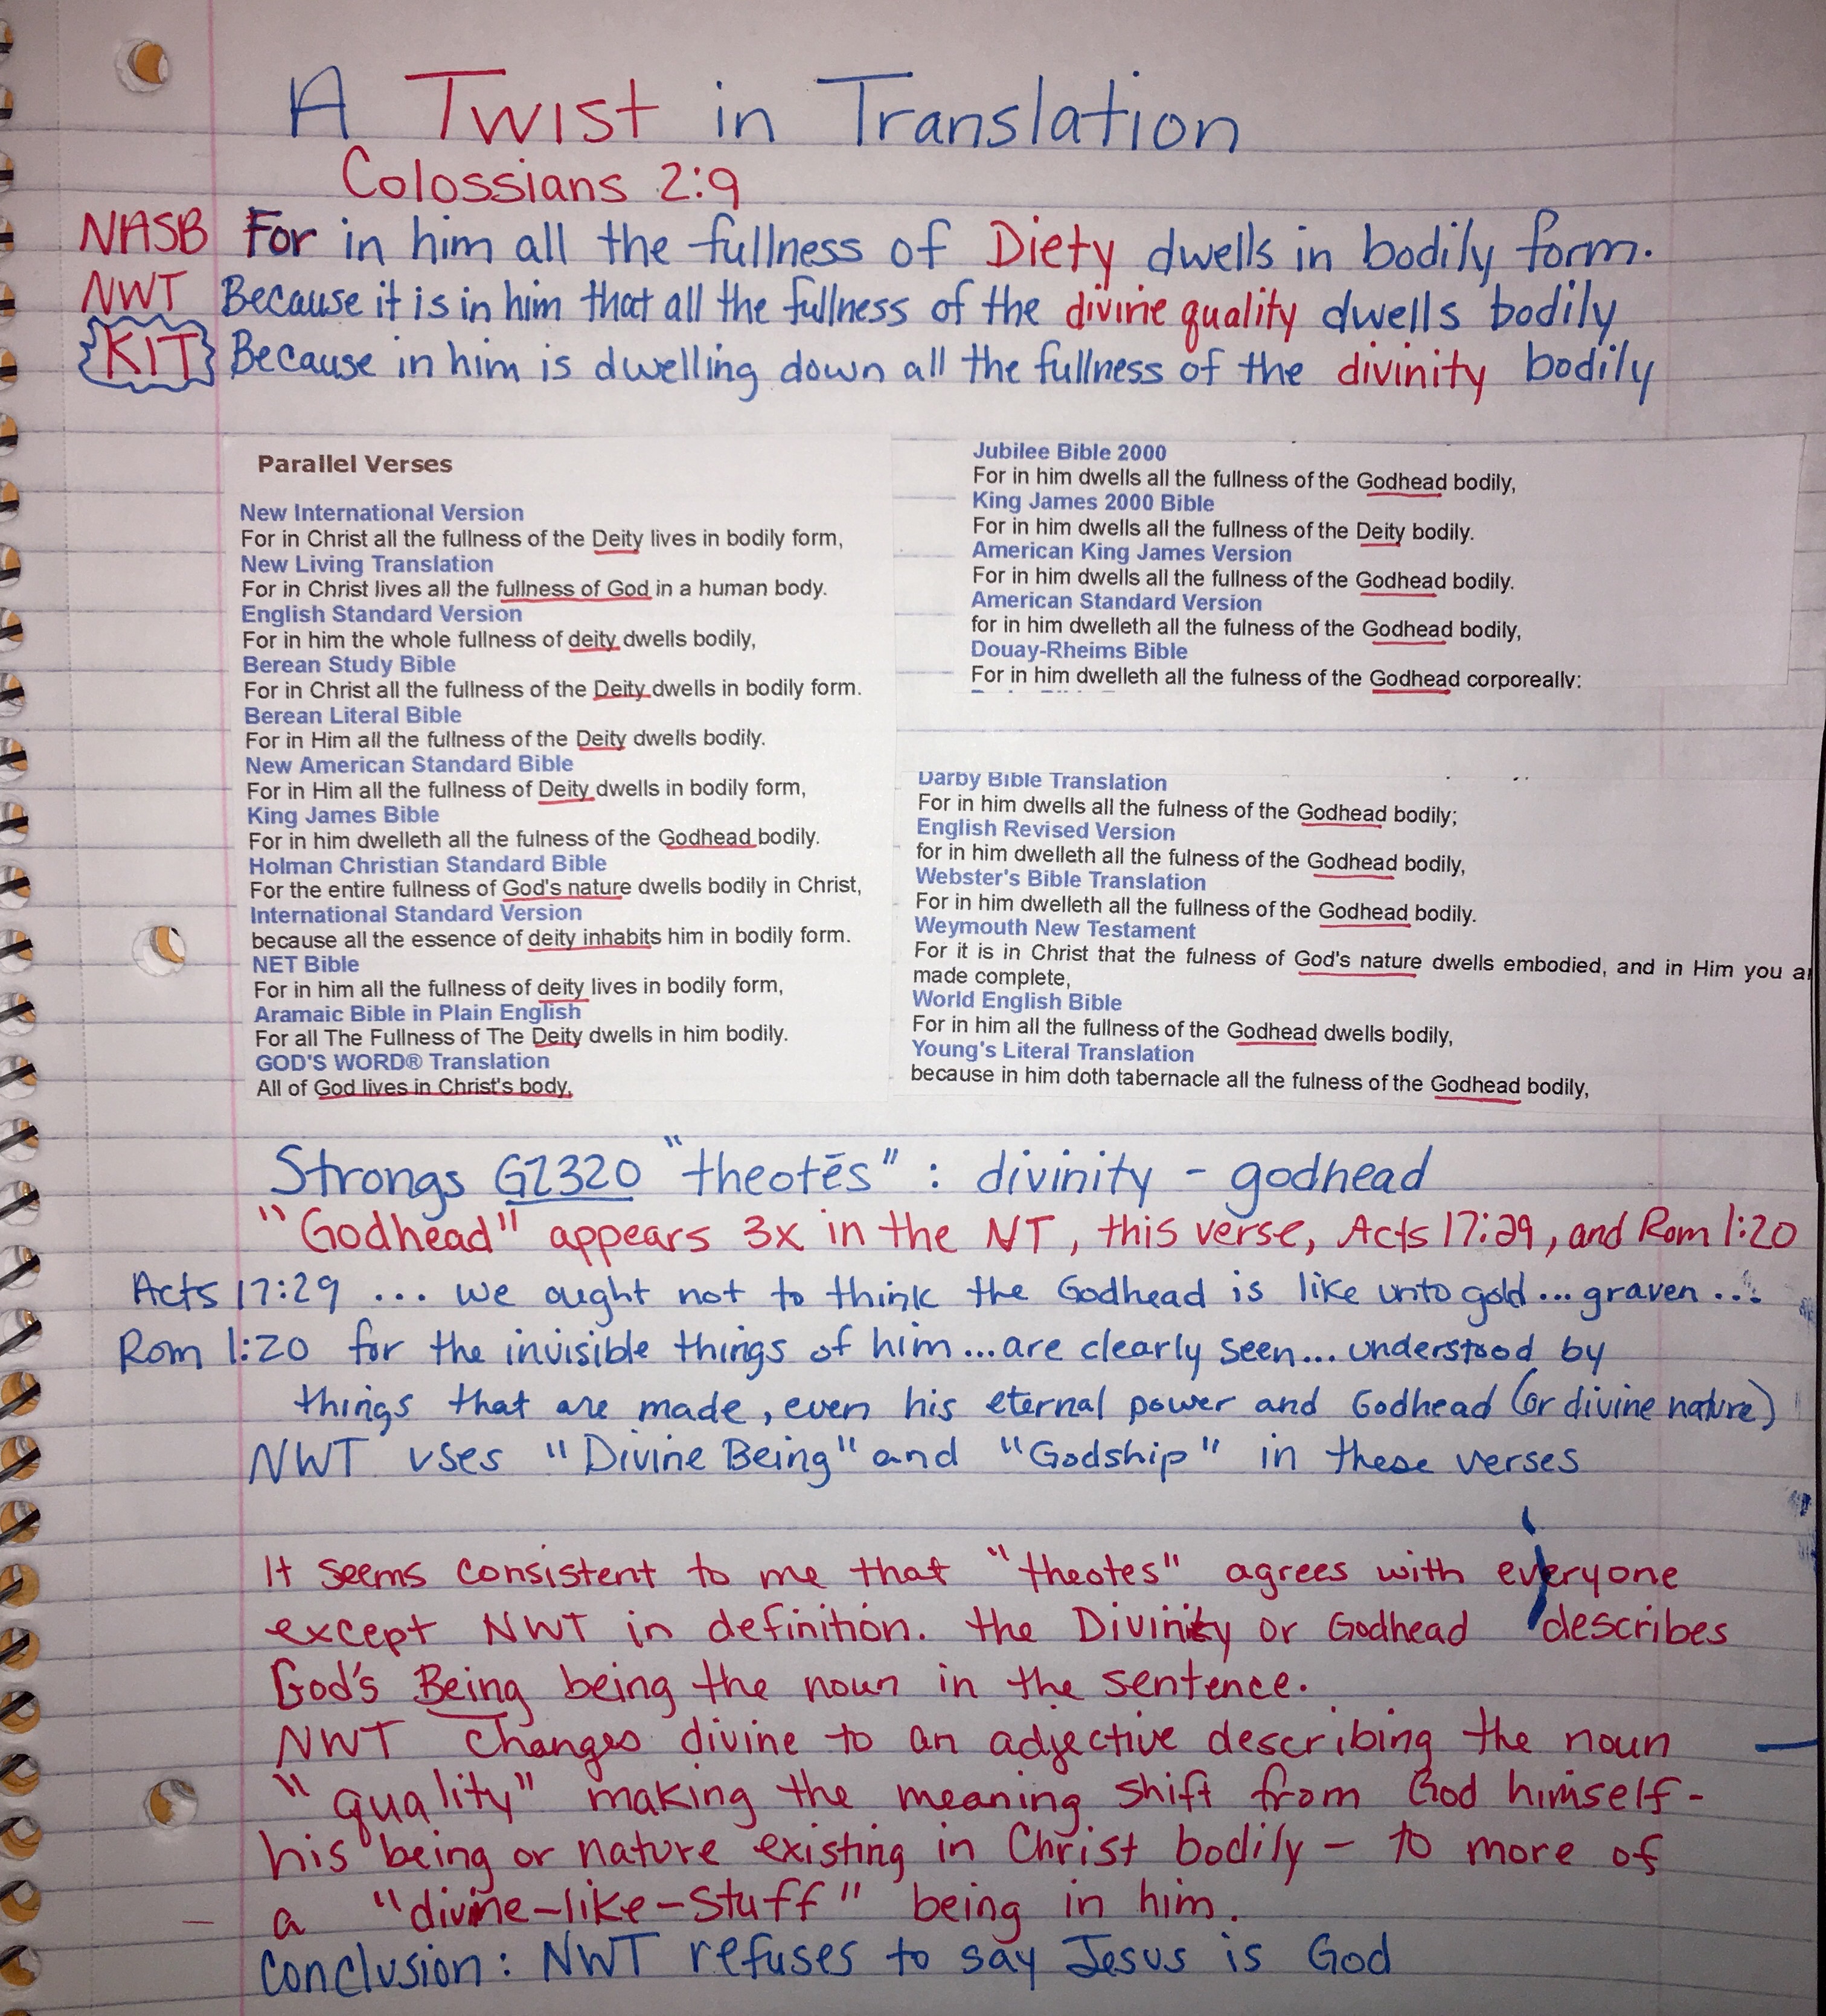 A Twist in Translation
Colossians 2:9
NASB For in him all the fullness of Diety dwells in bodily form.
NWT Because it is in him that all the fullness of the divine quality dwells bodily
KIT Because in him is dwelling down all the fullness of the divinity bodily
Parallel Verses
New International Version
For in Christ all the fullness of the Deity lives in bodily form,
New Living Translation
For in Christ lives all the fullness of God in a human body.
English Standard Version
For in him the whole fullness of deity dwells bodily,
Berean Study Bible
For in Christ all the fullness of the Deity dwells in bodily form.
Berean Literal Bible
For in Him all the fullness of the Deity dwells bodily.
New American Standard Bible
For in Him all the fullness of Deity dwells in bodily form,
King James Bible
For in him dwelleth all the fulness of the Godhead bodily.
Holman Christian Standard Bible
For the entire fullness of God's nature dwells bodily in Christ,
International Standard Version
because all the essence of deity inhabits him in bodily form.
NET Bible
For in him all the fullness of deity lives in bodily form,
Aramaic Bible in Plain English
For all The Fullness of The Deity dwells in him bodily.
GOD'S WORD® Translation
All of God lives in Christ's body,
Jubilee Bible 2000
For in him dwells all the fullness of the Godhead bodily,
King James 2000 Bible
For in him dwells all the fullness of the Deity bodily.
American King James Version
For in him dwells all the fullness of the Godhead bodily.
American Standard Version
for in him dwelleth all the fulness of the Godhead bodily,
Douay-Rheims Bible
For in him dwelleth all the fulness of the Godhead corporeally:
Darby Bible Translation
For in him dwells all the fulness of the Godhead bodily;
English Revised Version
for in him dwelleth all the fulness of the Godhead bodily,
Webster's Bible Translation
For in him dwelleth all the fullness of the Godhead bodily.
Weymouth New Testament
For it is in Christ that the fulness of God's nature dwells embodied, and in Him you
made complete,
World English Bible
For in him all the fullness of the Godhead dwells bodily,
Young's Literal Translation
because in him doth tabernacle all the fulness of the Godhead bodily,
Strongs G2320 "theotēs" : divinity - godhead
"Godhead" appears 3x in the NT, this verse, Acts 17:29, and Rom 1:20
Acts 17:29 ... we ought not to think the Godhead is like unto gold... graven...
Rom 1:20 for the invisible things of him... are clearly seen... understood by
things that are made, even his eternal power and Godhead (or divine nature)
NWT uses "Divine Being" and "Godship" in these verses
It seems consistent to me that "theotes" agrees with everyone
except NWT in definition. the Divinity or Godhead describes
God's Being being the noun in the sentence.
NWT changes divine to an adjective describing the noun
"quality" making the meaning shift from God himself-
his being or nature existing in Christ bodily - to more of
a "divine-like-stuff" being in him.
Conclusion: NWT refuses to say Jesus is God